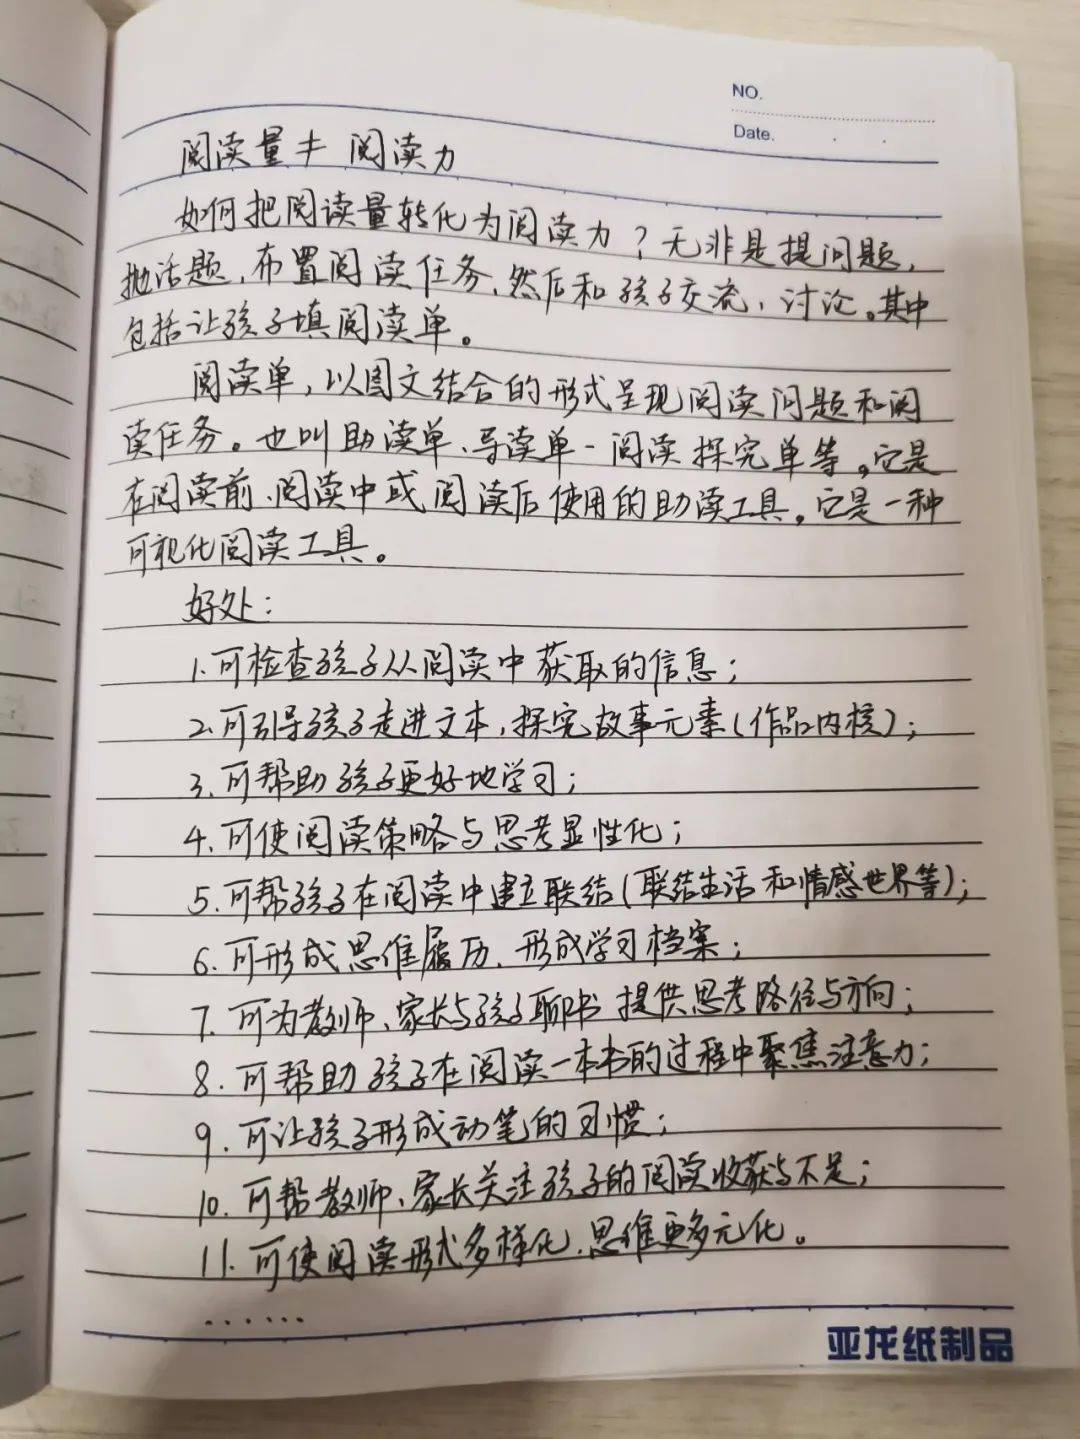 NO.
Date.
阅读量≠阅读力
如何把阅读量转化为阅读力？无非是提问题，
抛话题，布置阅读任务，然后和孩子交流、讨论。其中
包括让孩子填阅读单。
阅读单，以图文结合的形式呈现阅读问题和阅
读任务。也叫助读单、导读单、阅读探究单等。它是
在阅读前、阅读中或阅读后使用的助读工具。它是一种
可视化阅读工具。
好处：
1.可检查孩子从阅读中获取的信息；
2.可引导孩子走进文本，探究故事元素（作品内核）；
3.可帮助孩子更好地学习；
4.可使阅读策略与思考显性化；
5.可帮孩子在阅读中建立联结（联结生活和情感世界等）；
6.可形成思维履历，形成学习档案；
7.可为教师、家长与孩子聊书提供思考路径与方向；
8.可帮助孩子在阅读一本书的过程中聚焦注意力；
9.可让孩子形成动笔的习惯；
10.可帮教师、家长关注孩子的阅读收获与不足；
11.可使阅读形式多样化，思维更多元化。
……
亚龙纸制品